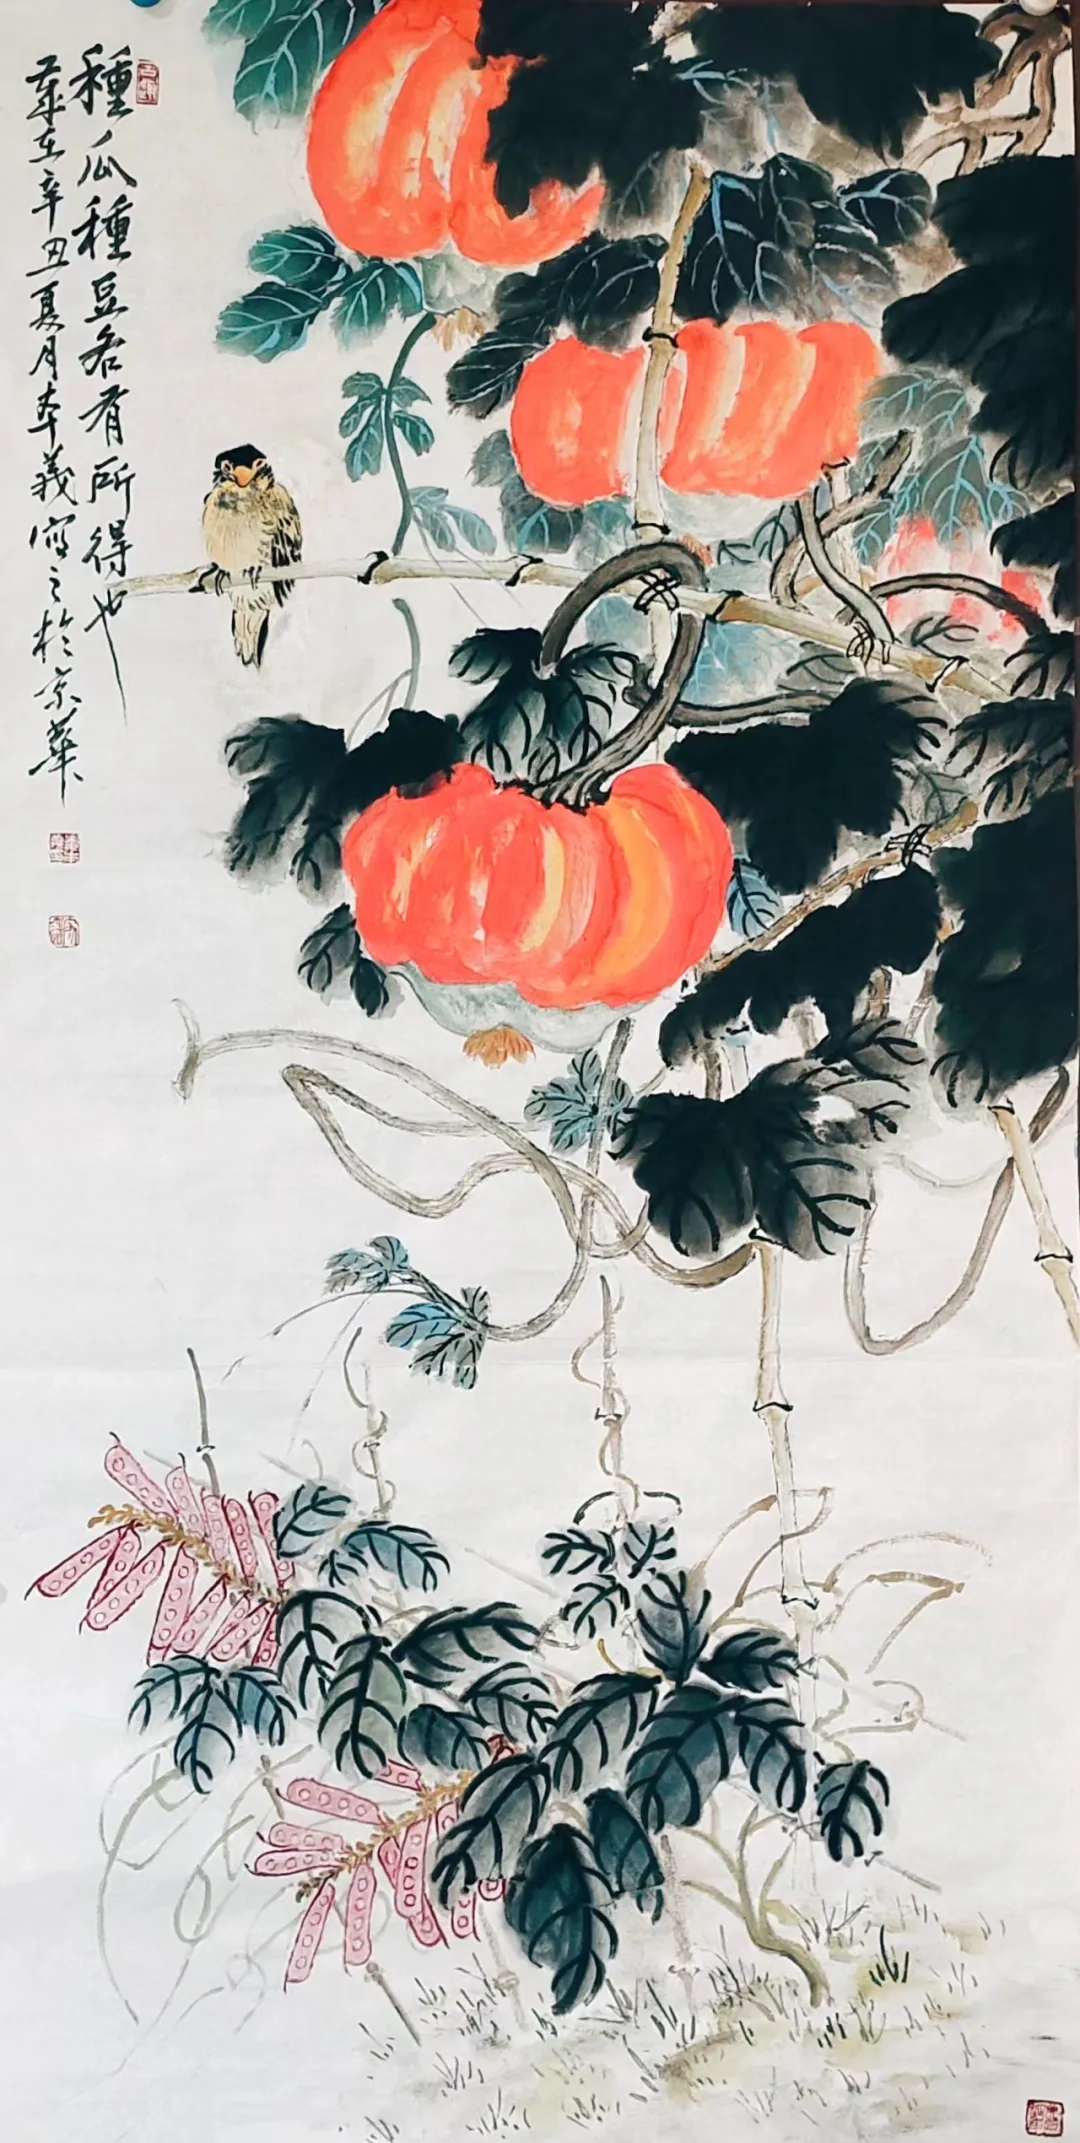 種瓜種豆各有所得也
歲在辛丑夏月李義寫之於京華